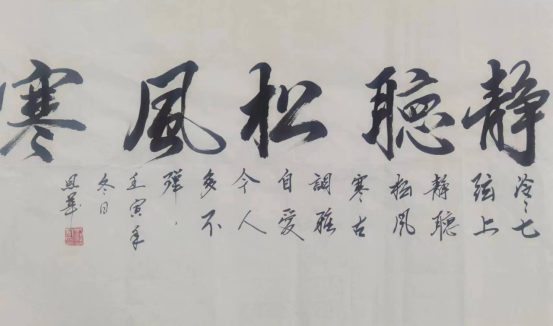 静聽松風寒
泠々七
弦上
静聽
松風
寒古
調雖
自愛
今人
多不
彈
壬寅年
冬日